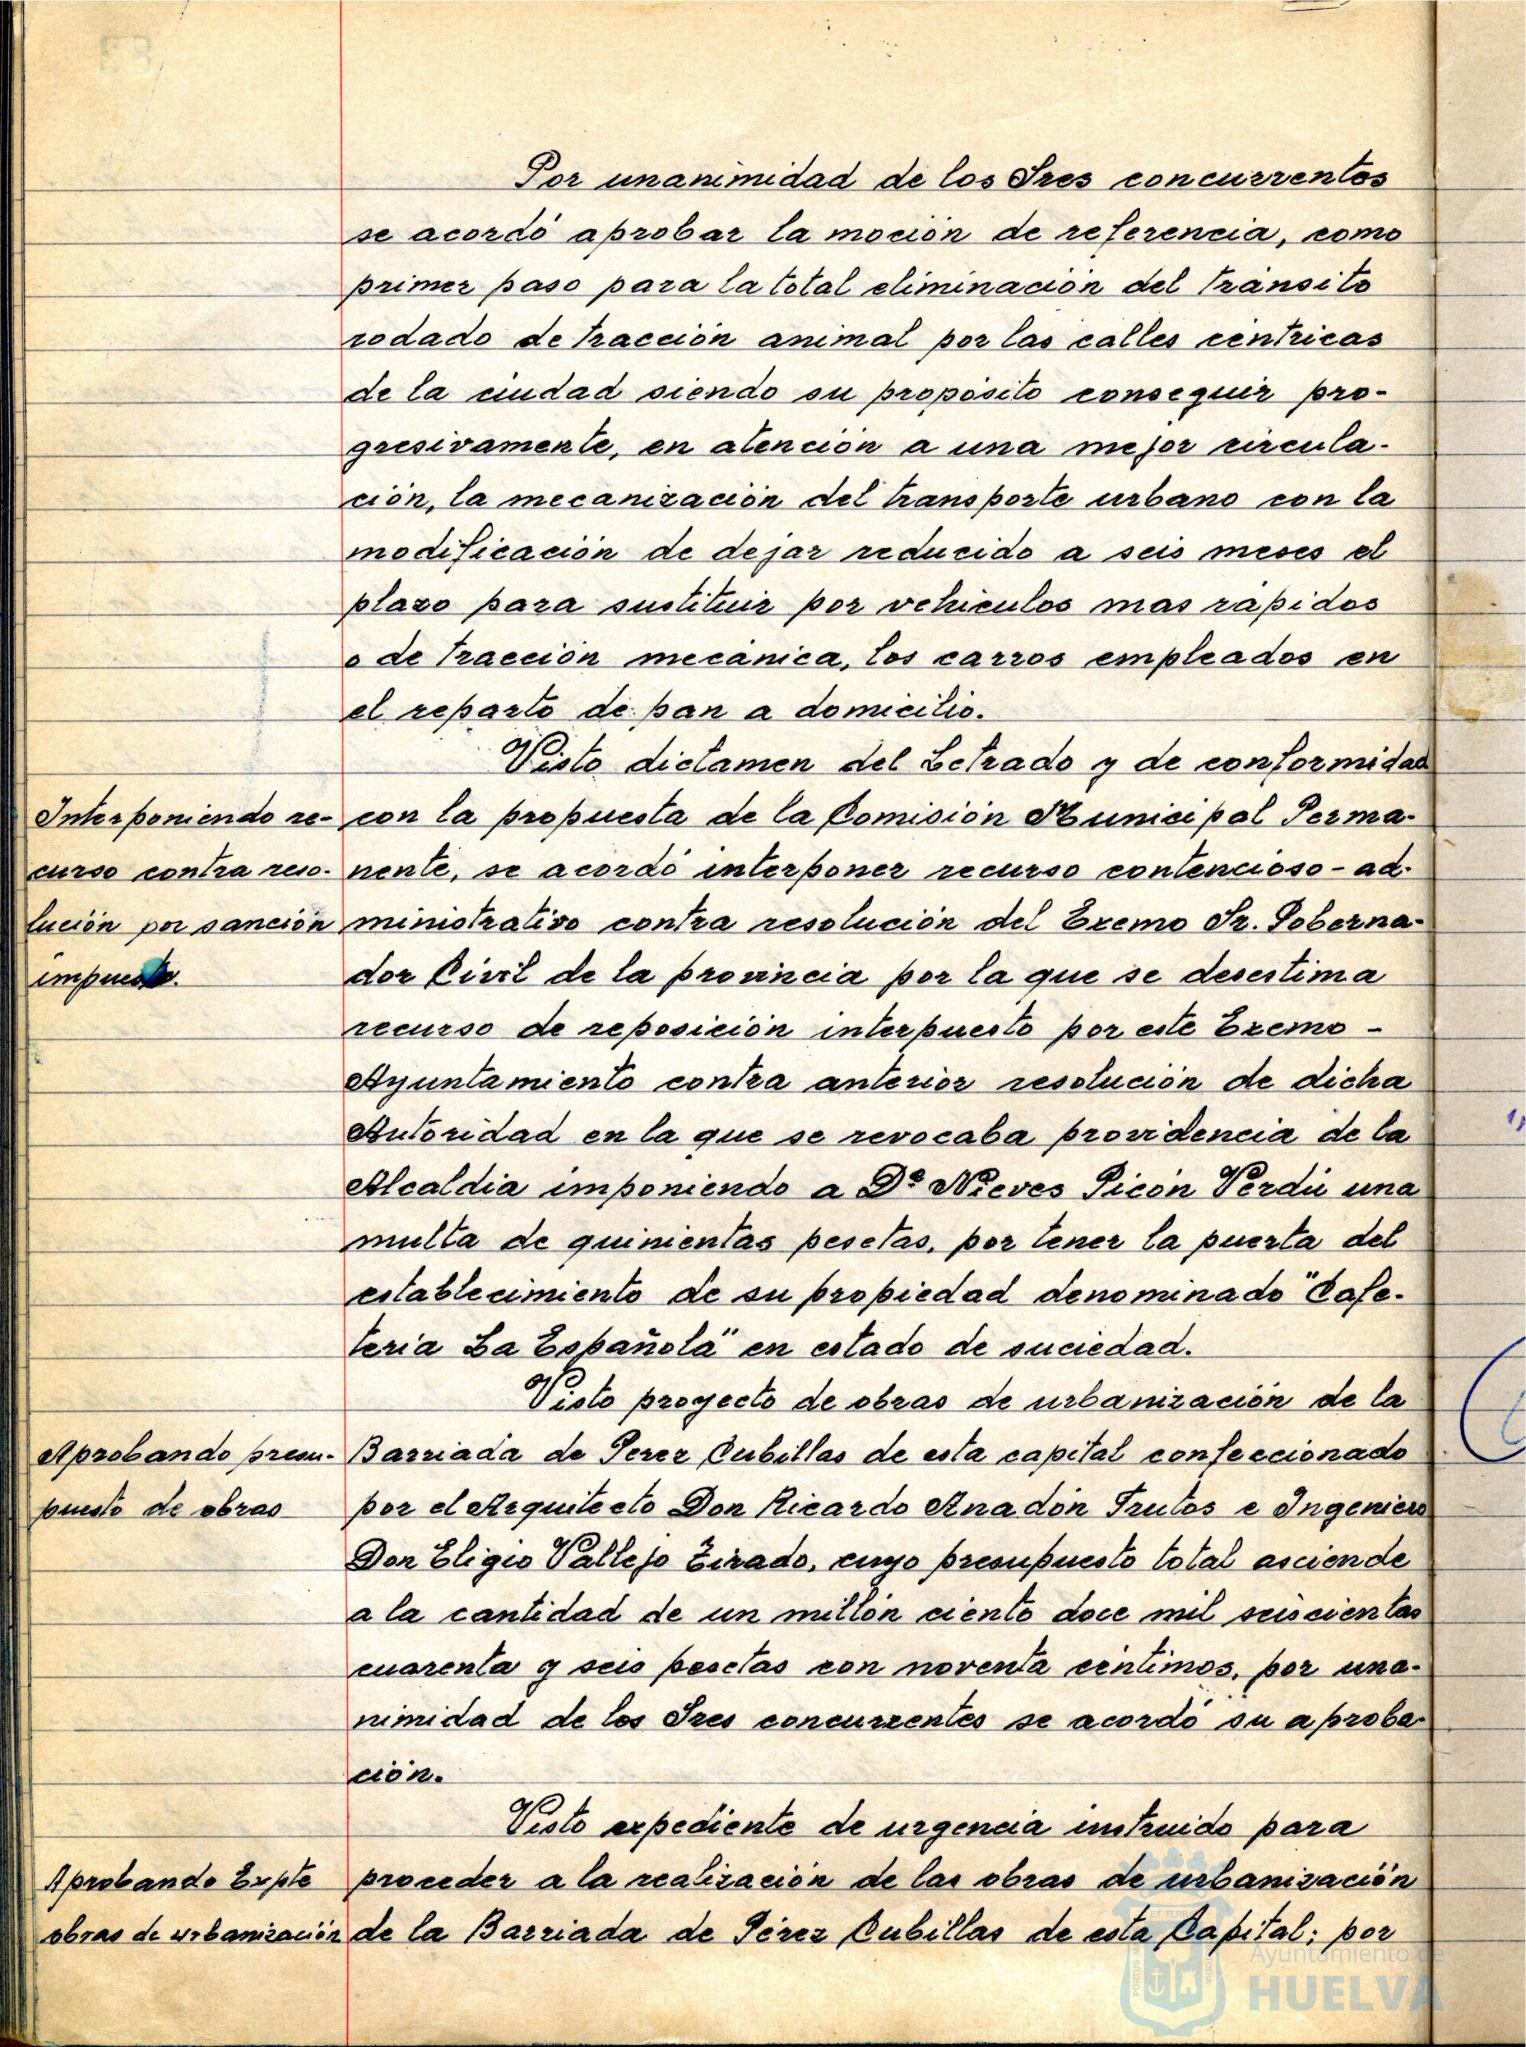 Por unanimidad de los Sres concurrentes
se acordó aprobar la moción de referencia, como
primer paso para la total eliminación del tránsito
rodado de tracción animal por las calles céntricas
de la ciudad siendo su propósito conseguir pro-
gresivamente, en atención a una mejor circula-
ción, la mecanización del transporte urbano con la
modificación de dejar reducido a seis meses el
plazo para sustituir por vehículos mas rápidos
o de tracción mecánica, los carros empleados en
el reparto de pan a domicilio.
Visto dictamen del Letrado y de conformidad
Interponiendo re-
curso contra reso-
lución por sanción
impuesta.
con la propuesta de la Comisión Municipal Perma-
nente, se acordó interponer recurso contencioso-ad-
ministrativo contra resolución del Excmo Sr. Goberna-
dor Civil de la provincia por la que se desestima
recurso de reposición interpuesto por este Excmo -
Ayuntamiento contra anterior resolución de dicha
Autoridad en la que se revocaba providencia de la
Alcaldia imponiendo a Dª Nieves Picón Verdú una
multa de quinientas pesetas, por tener la puerta del
establecimiento de su propiedad denominado "Cafe-
teria La Española" en estado de suciedad.
Visto proyecto de obras de urbanización de la
Aprobando presu-
puesto de obras
Barriada de Perez Cubillas de esta capital confeccionado
por el Arquitecto Don Ricardo Anadón Frutos e Ingeniero
Don Eligio Vallejo Tirado, cuyo presupuesto total asciende
a la cantidad de un millón ciento doce mil seiscientas
cuarenta y seis pesetas con noventa céntimos, por una-
nimidad de los Sres concurrentes se acordó su aproba-
ción.
Visto expediente de urgencia instruido para
Aprobando Expte
obras de urbanización
proceder a la realización de las obras de urbanización
de la Barriada de Pérez Cubillas de esta Capital; por
Ayuntamiento de
HUELVA